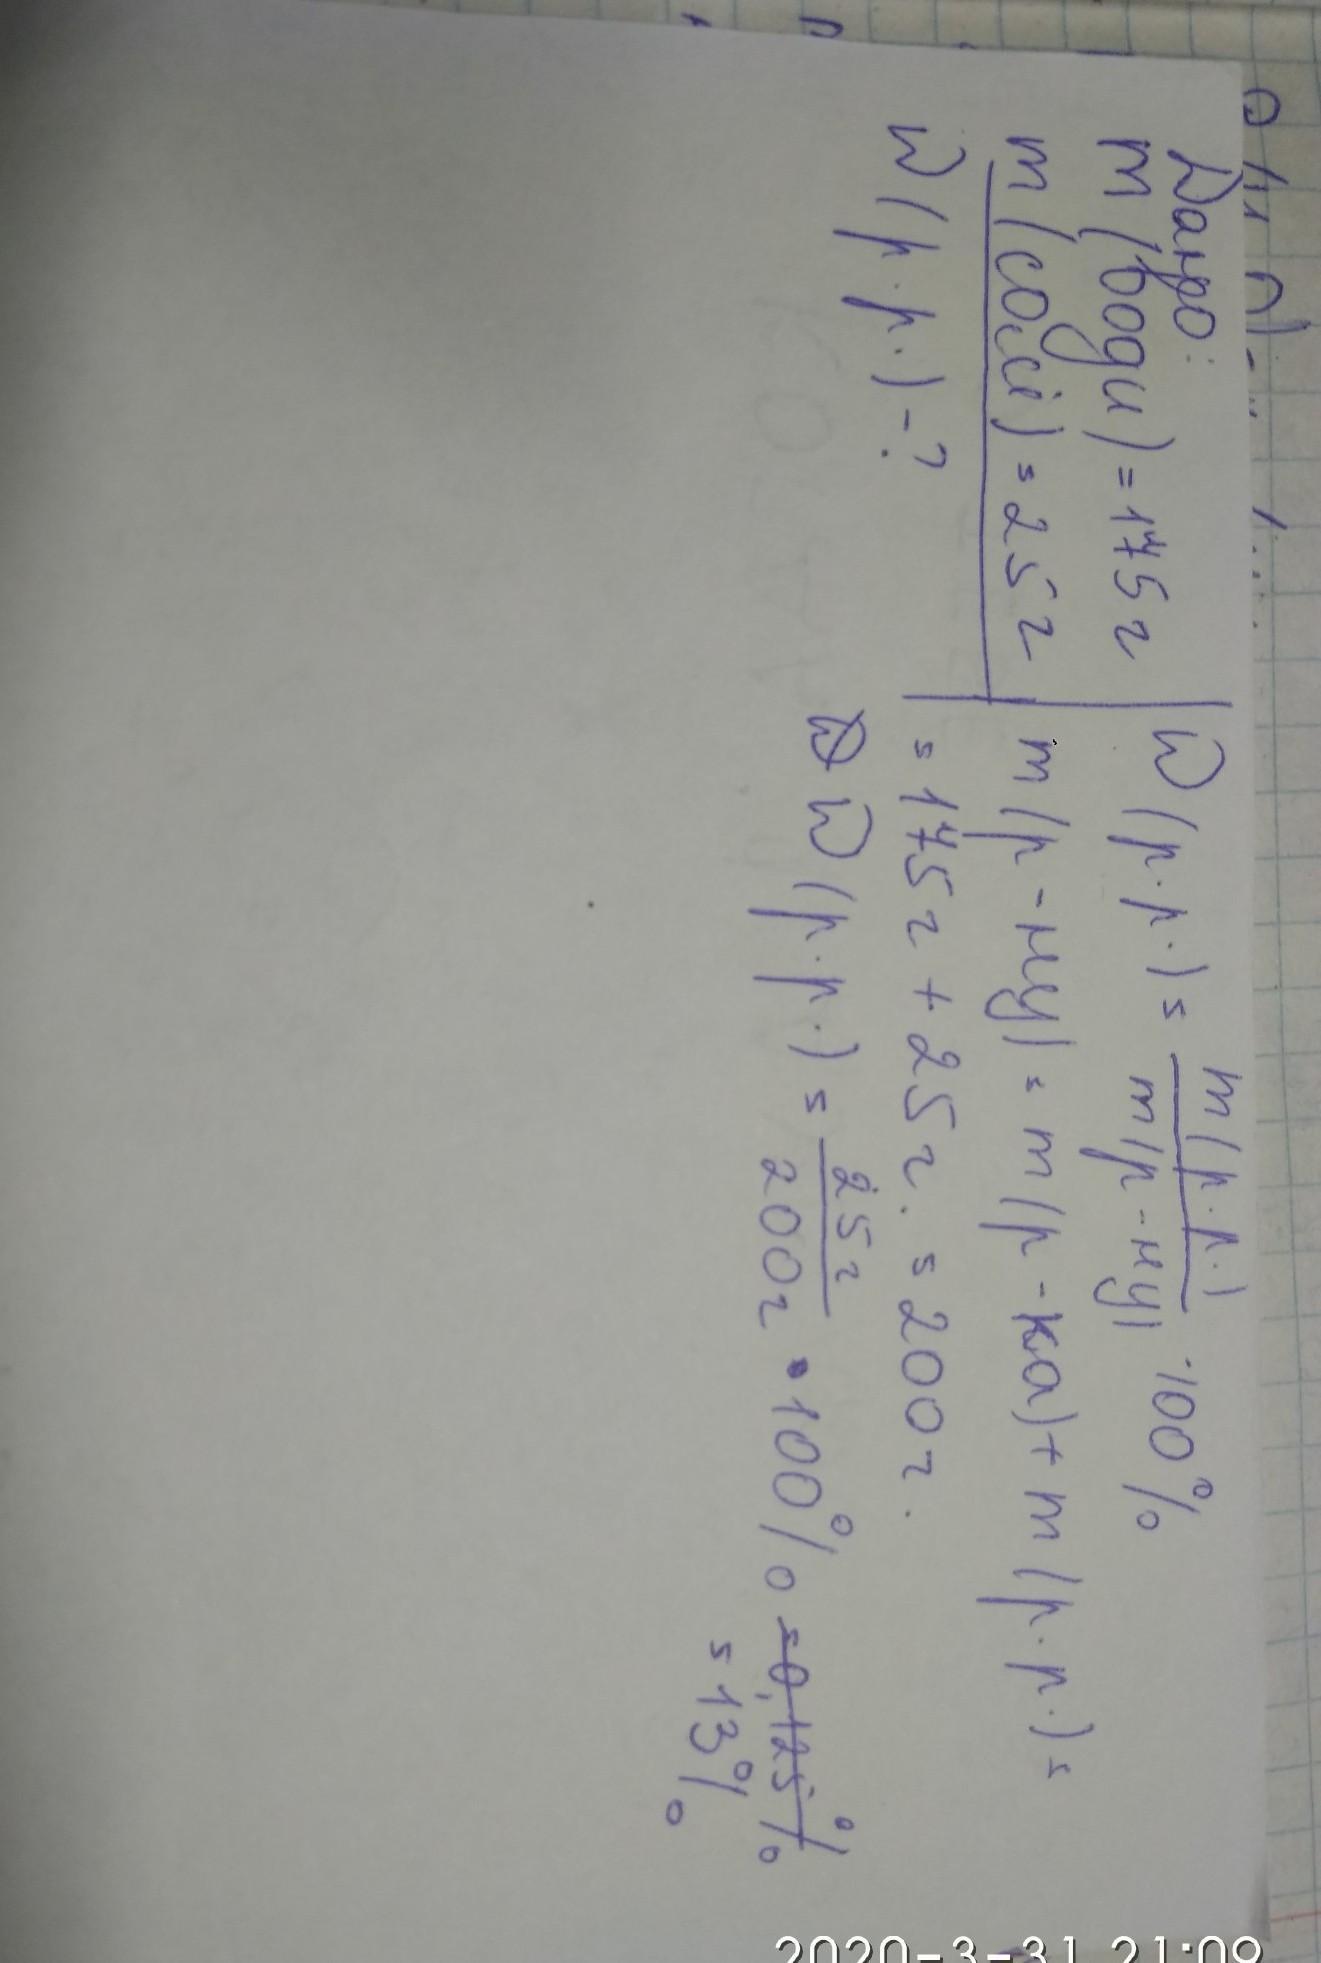 Дано:
m (води) = 175 г
m (солі) = 25 г
W (р.р.) - ?
W (р.р.) = m (р.р.) / m (р-ну) · 100%
m (р-ну) = m (р-ка) + m (р.р.) =
= 175 г + 25 г. = 200 г.
W (р.р.) = 25 г / 200 г · 100% = 0,125%
= 13%
2020-3-31 21:09